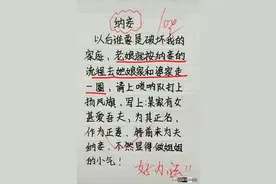 纳妾
100
以后谁要是破坏我的
家庭，老娘就按纳妾的
流程去她娘家和婆家走
一圈，请上唢呐队打上
扬风旗，写上:某家有女
甚爱吾夫，为其正名，
作为正妻，转甬来为夫
纳妾，不然显得做姐姐
的小气！
好办法!!